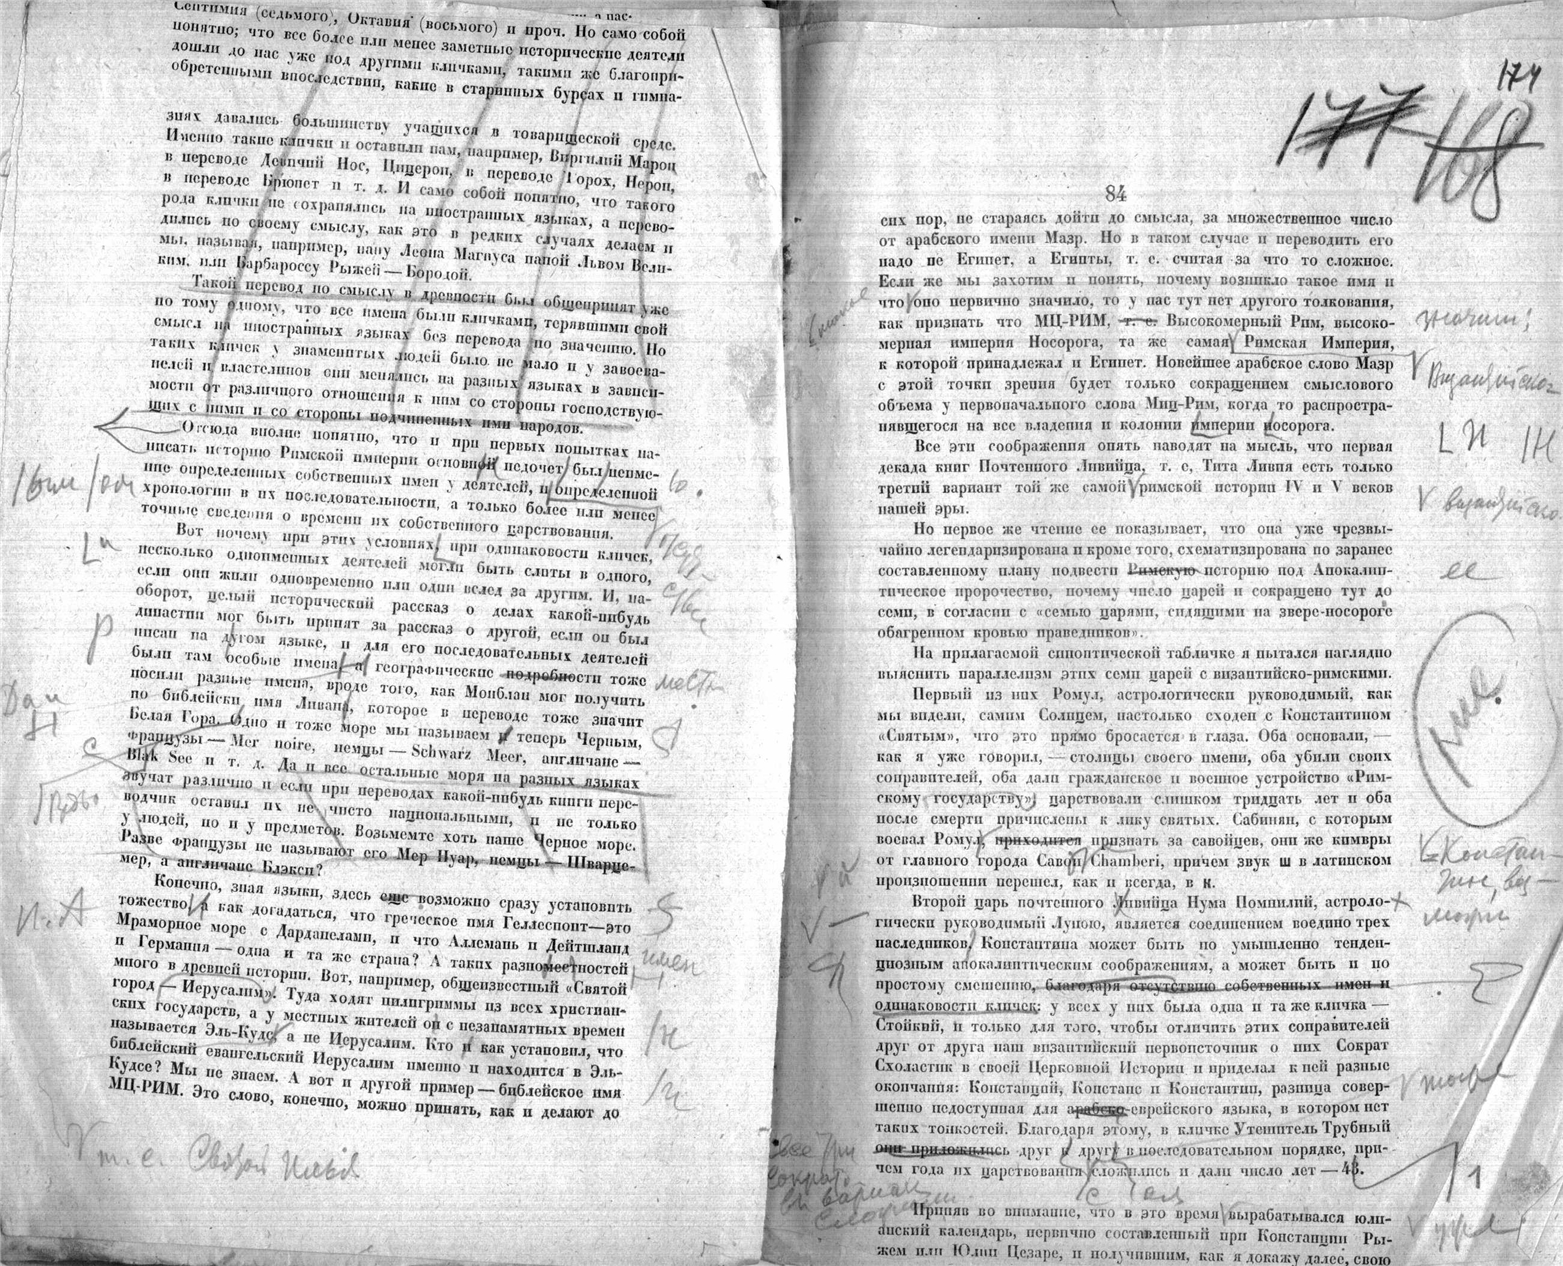 Септимия (седьмого), Октавия (восьмого) и проч. Но само собой
понятно; что все более или менее заметные исторические деятели
дошли до нас уже под другими кличками, такими же благопри-
обретенными впоследствии, какие в старинных бурсах и гимна-
зиях давались большинству учащихся в товарищеской среде.
Именно такие клички и оставили нам, например, Виргилий Марон
в переводе Девичий Нос, Цицерон, в переводе Горох, Нерон,
в переводе Брюнет и т. д. И само собой понятно, что такого
рода клички не сохранялись на иностранных языках, а перево-
дились по своему смыслу, как это в редких случаях делаем и
мы, называя, например, папу Леона Магнуса папой Львом Вели-
ким, или Барбароссу Рыжей — Бородой.
Такой перевод по смыслу в древности был общепринят уже
по тому одному, что все имена были кличками, терявшими свой
смысл на иностранных языках без перевода по значению. Но
таких кличек у знаменитых людей было не мало и у завоева-
телей и властелинов они менялись на разных языках в зависи-
мости от различного отношения к ним со стороны господствую-
щих с ними и со стороны подчиненных ими народов.
Отсюда вполне понятно, что и при первых попытках на-
писать историю Римской империи основной недочет был неиме-
ние определенных собственных имен у деятелей, и определенной
хронологии в их последовательности, а только более или менее
точные сведения о времени их собственного царствования.
Вот почему при этих условиях, при одинаковости кличек,
несколько одноименных деятелей могли быть слиты в одного,
если они жили одновременно или один вслед за другим. И, на-
оборот, целый исторический рассказ о делах какой-нибудь
династии мог быть принят за рассказ о другой, если он был
писан на дугом языке, и для его последовательных деятелей
были там особые имена, а географические подробности тоже
носили разные имена, вроде того, как Монблан мог получить
по библейски имя Ливана, которое в переводе тоже значит
Белая Гора. Одно и тоже море мы называем и теперь Черным,
французы — Mer noire, немцы — Schwarz Meer, англичане —
Blak See и т. д. Да и все остальные моря на разных языках
звучат различно и если при переводах какой-нибудь книги пере-
водчик оставил их не чисто национальными, и не только
у людей, но и у предметов. Возьмемте хоть наше Черное море.
Разве французы не называют его Мер Нуар, немцы — Шварце-
мер, а англичане Блэкси?
Конечно, зная языки, здесь еще возможно сразу установить
тожество, а как догадаться, что греческое имя Геллеспонт—это
Мраморное море с Дарданелами, и что Аллемань и Дейтшланд
и Германия — одна и та же страна? А таких разноместностей
много в древней истории. Вот, например, общеизвестный «Святой
город — Иерусалим». Туда ходят пилигримы из всех христиан-
ских государств, а у местных жителей он с незапамятных времен
называется Эль-Кудс, а не Иерусалим. Кто и как установил, что
библейский евангельский Иерусалим именно и находится в Эль-
Кудсе? Мы не знаем. А вот и другой пример — библейское имя
МЦ-РИМ. Это слово, конечно, можно принять, как и делают до
174
177 168
84
сих пор, не стараясь дойти до смысла, за множественное число
от арабского имени Мазр. Но в таком случае и переводить его
надо не Египет, а Египты, т. е. считая за что то сложное.
Если же мы захотим и понять, почему возникло такое имя и
что оно первично значило, то у нас тут нет другого толкования,
как признать что МЦ-РИМ, т. е. Высокомерный Рим, высоко-
мерная империя Носорога, та же самая Римская Империя,
к которой принадлежал и Египет. Новейшее арабское слово Мазр
с этой точки зрения будет только сокращением смыслового
объема у первоначального слова Миц-Рим, когда то распростра-
нявшегося на все владения и колонии империи носорога.
Все эти соображения опять наводят на мысль, что первая
декада книг Почтенного Ливийца, т. е, Тита Ливия есть только
третий вариант той же самой римской истории IV и V веков
нашей эры.
Но первое же чтение ее показывает, что она уже чрезвы-
чайно легендаризирована и кроме того, схематизирована по заранее
составленному плану подвести Римскую историю под Апокалип-
тическое пророчество, почему число царей и сокращено тут до
семи, в согласии с «семью царями, сидящими на звере-носороге
обагренном кровью праведников».
На прилагаемой синоптической табличке я пытался наглядно
выяснить параллелизм этих семи царей с византийско-римскими.
Первый из них Ромул, астрологически руководимый, как
мы видели, самим Солнцем, настолько сходен с Константином
«Святым», что это прямо бросается в глаза. Оба основали, —
как я уже говорил, — столицы своего имени, оба убили своих
соправителей, оба дали гражданское и военное устройство «Рим-
скому государству», царствовали слишком тридцать лет и оба
после смерти причислены к лику святых. Сабинян, с которым
воевал Ромул, приходится признать за савойцев, они же кимвры
от главного города Савои Chamberi, причем звук ш в латинском
произношении перешел, как и всегда, в н.
Второй царь почтенного Ливийца Нума Помпилий, астроло-
гически руководимый Луною, является соединением воедино трех
наследников, Константина может быть по умышленно тенден-
циозным апокалиптическим соображениям, а может быть и по
простому смешению, благодаря отсутствию собственных имен и
одинаковости кличек: у всех у них была одна и та же кличка —
Стойкий, и только для того, чтобы отличить этих соправителей
друг от друга наш византийский первоисточник о них Сократ
Схоластик в своей Церковной Истории и приделал к ней разные
окончания: Констанций, Констанс и Константин, разница совер-
шенно недоступная для арабско-еврейского языка, в котором нет
таких тонкостей. Благодаря этому, в кличке Утешитель Трубный
они приложились друг к другу в последовательном порядке, при-
чем года их царствования сложились и дали число лет — 43.
Приняв во внимание, что в это время вырабатывался юли-
анский календарь, первично составленный при Констанции Ры-
жем или Юлии Цезаре, и получившим, как я докажу далее, свою